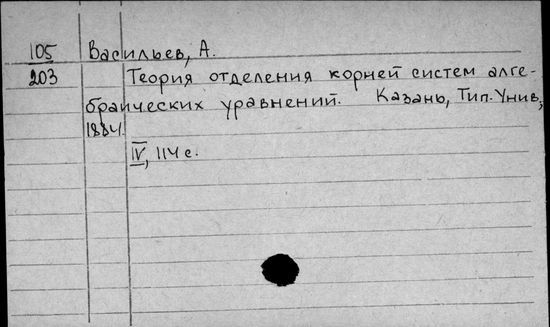 105 Васильев, А.
203 Теория отделения корней систем алге-
браических уравнений. Казань, Тип. Унив.,
1884.
IV, 114 с.